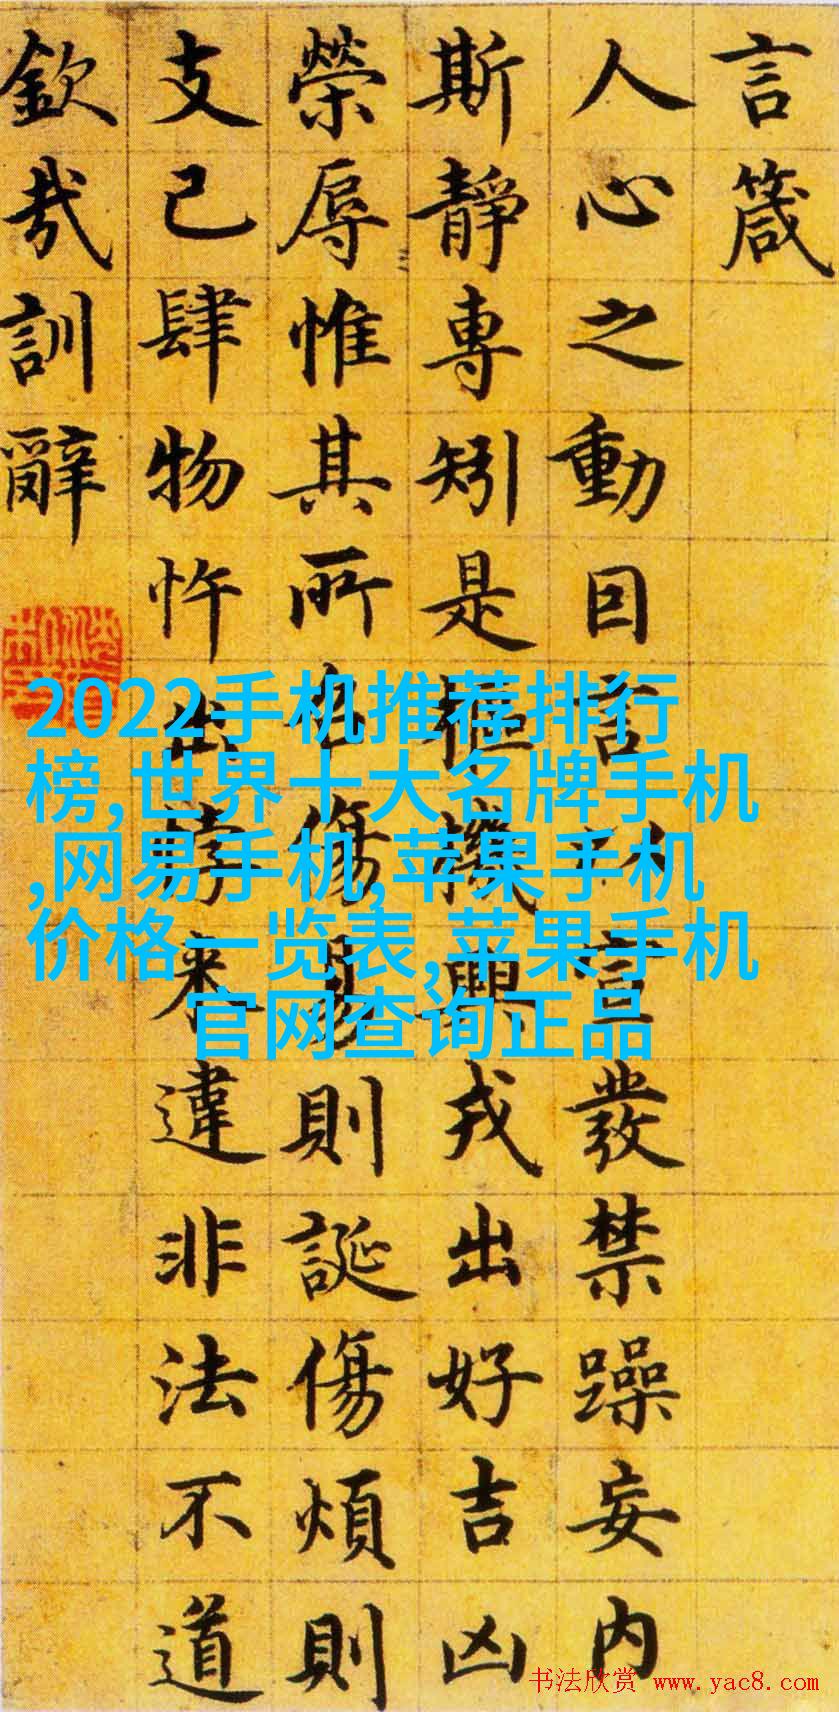 言箴
人心之動囙言以宣發禁躁妄内
斯靜專矧是樞機興戎出好吉凶
榮辱惟其所召傷易則誕傷煩則
支己肆物忤出悖来違非法不道
欽哉訓辭
2022手机推荐排行
榜,世界十大名牌手机
,网易手机,苹果手机
价格一览表,苹果手机
官网查询正品
书法欣赏 www.yac8.com